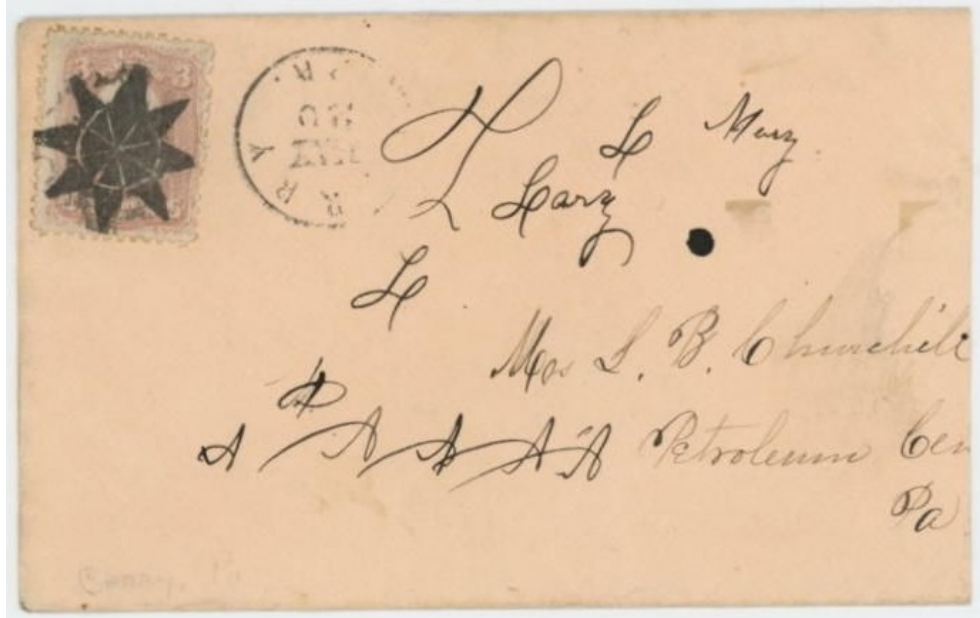 3 3
L Mary
L Lary
L
Mrs L. B. Churchill
A A A A A A Petroleum Cen
Pa
Corry, Pa